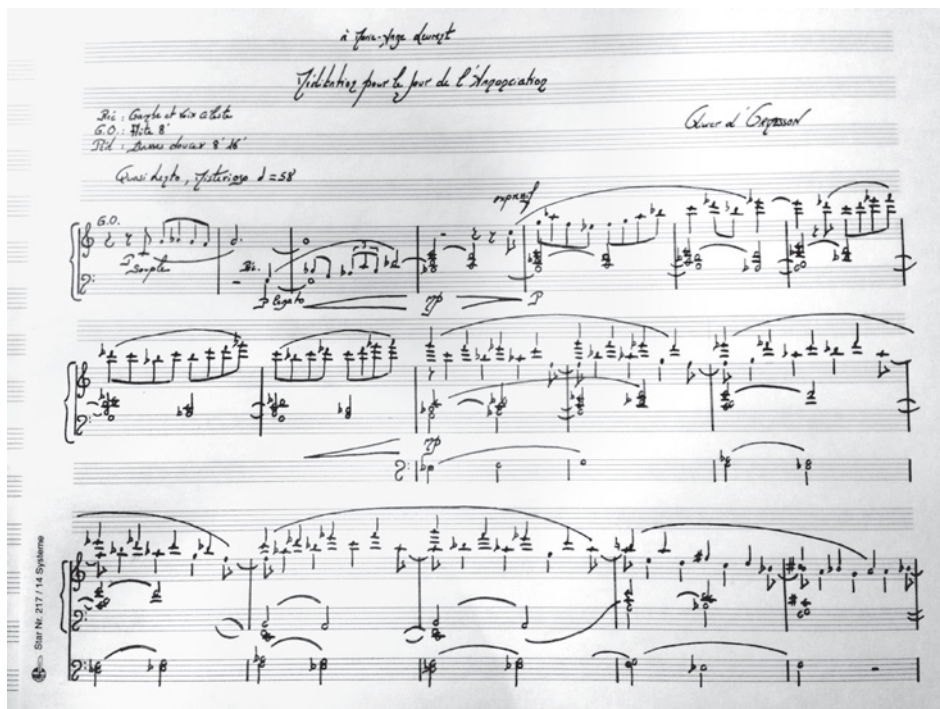 à Marie-Ange Leurent
Méditation pour le Jour de l'Annonciation
Réc : Gambe et Voix céleste
G.O. : Flûte 8'
Péd : Basses douces 8' 16'
Olivier d'ORMESSON
Quasi Lento, Misterioso = 58
expressif
G.O.
P
Souple
Réc.
P legato
mp
P
mp
Star Nr. 217 / 14 Systeme